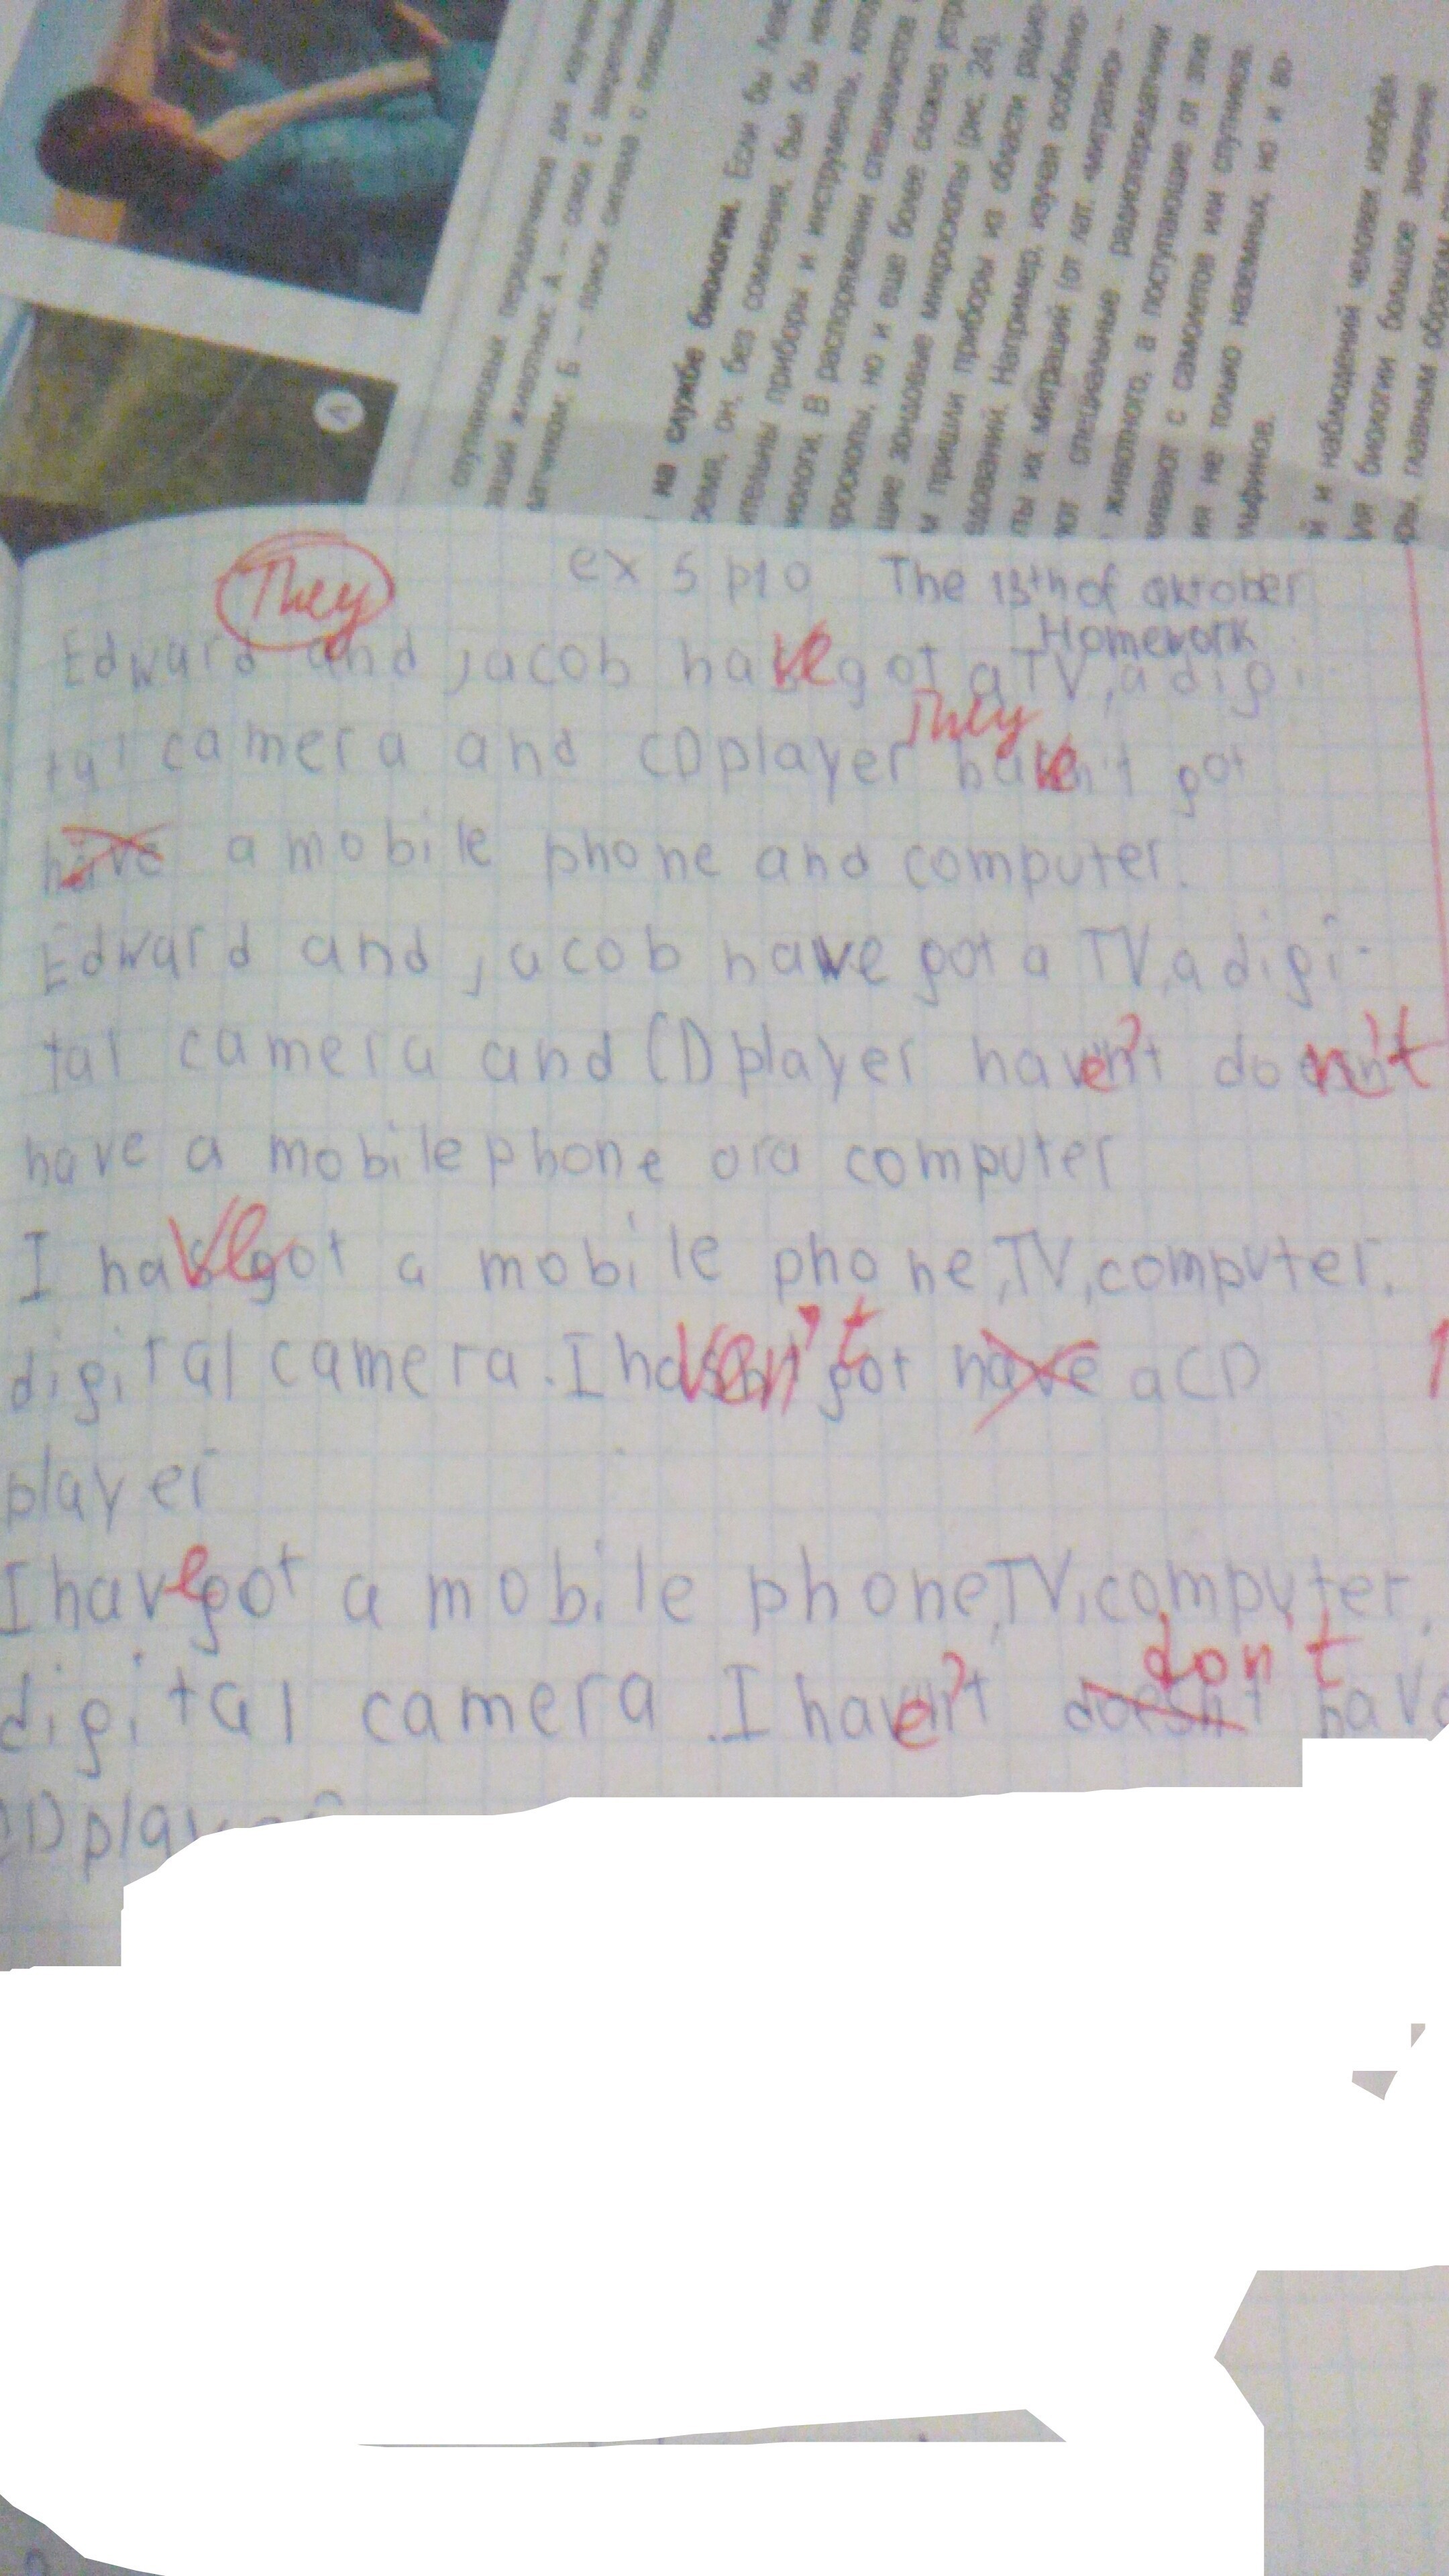 спутниковых передатчиков для
животных: А – сокол с
Б – поиск сигнала с
на службе биологии. Если бы
он, без сомнения, был бы
приборы и инструменты,
В распоряжении специалистов
но и еще более сложно
зондовые микроскопы (рис. 24).
м пришли приборы из области радио-
Например, изучая особенно-
их миграций (от лат. «миграцио» –
специальные радиопередатчики
животного, а поступающие от этих
с самолётов или спутников.
ия не только наземных, но и во-
й и наблюдений человек изобрёл
биологии большое значение
главным образом
А
They
ex 5 p10 The 13th of oktober
Homework
Edward and jacob have got a TV, a digi-
They
tal camera and CD player haven't got
have a mobile phone and computer.
Edward and jacob have got a TV, a digi-
tal camera and CD player haven't don't
have a mobile phone or a computer
I have got a mobile phone, TV, computer,
digital camera. I haven't got have a CD
player
I have got a mobile phone, TV, computer,
don't
digital camera. I haven't doesn't have
CD player